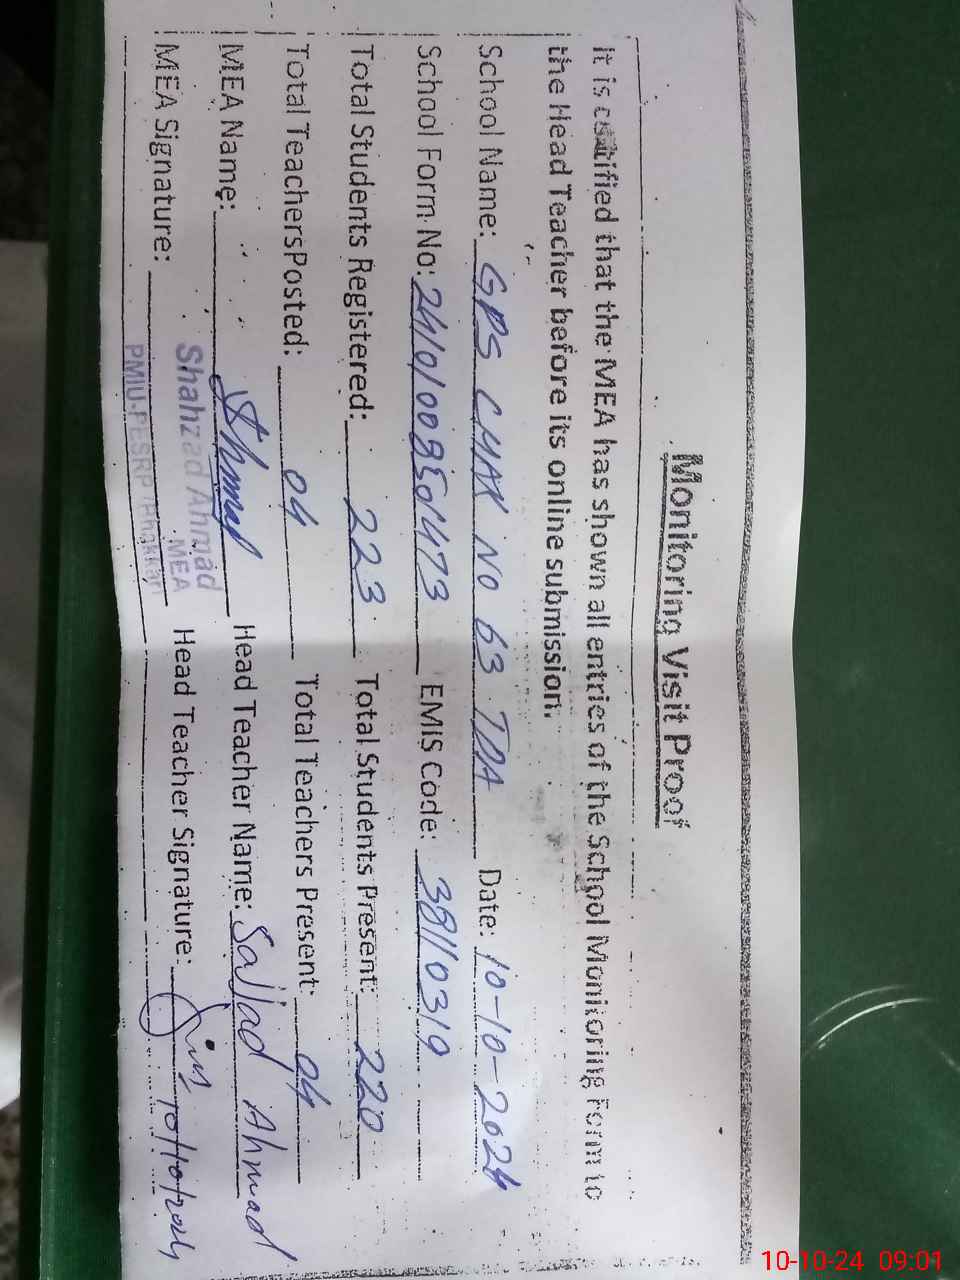 Monitoring Visit Proof
It is certified that the MEA has shown all entries of the School Monitoring Form to
the Head Teacher before its online submission.
School Name: GPS CHAK NO 63 TDA Date: 10-10-2024
School Form No: EMIS Code: 38110319
Total Students Registered: 223 Total Students Present: 220
Total TeachersPosted: 04 Total Teachers Present: 04
MEA Name: Head Teacher Name: Sajjad Ahmad
MEA Signature: Head Teacher Signature: 10/10/2024
Shahzad Ahmad
MEA
PMIU-PESRP/Bhakkar
10-10-24 09:01